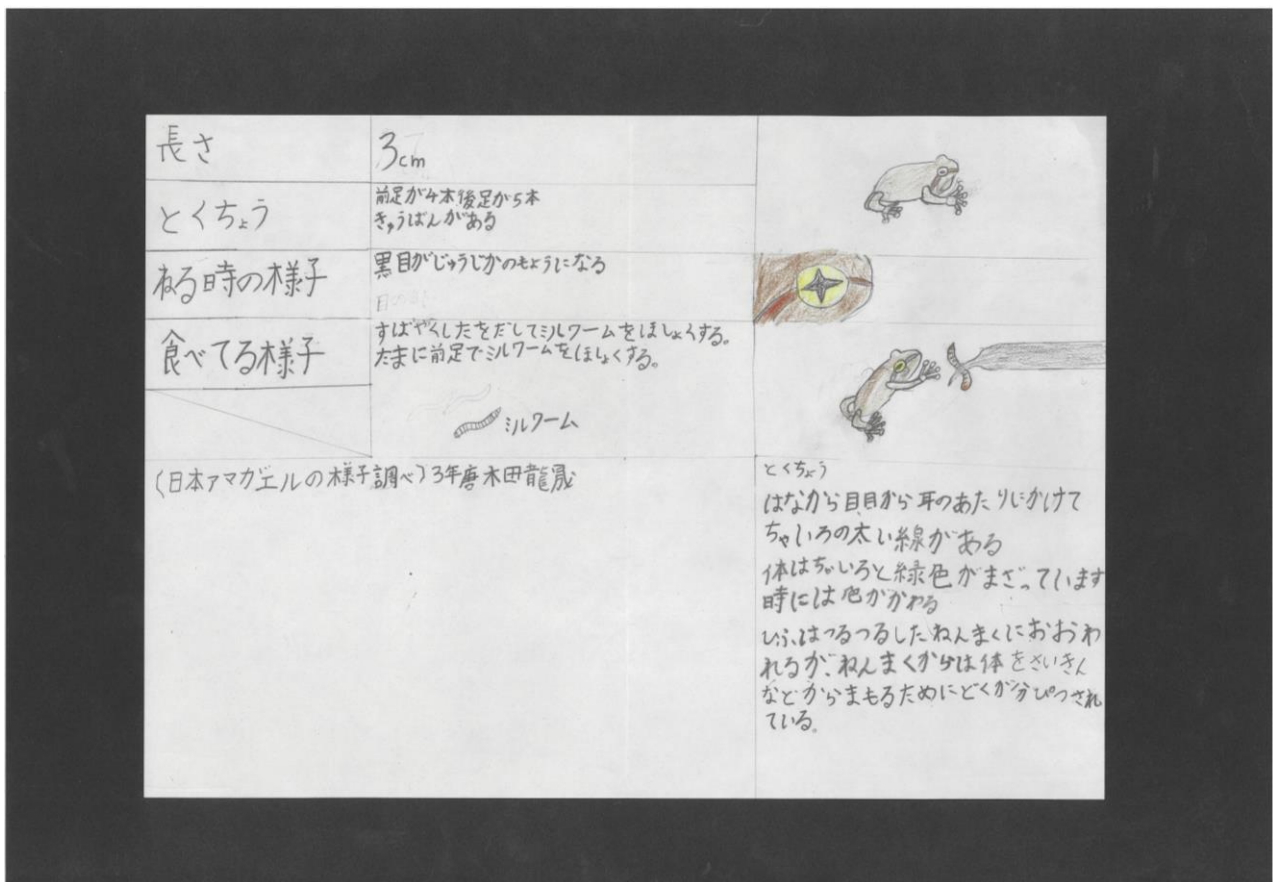 長さ
3cm
とくちょう
前足が4本後足が5本
きゅうばんがある
ねる時の様子
黒目がじゅうじかのもように なる
食べてる様子
すばやくしたをだしてミルワームをほしょくする。
たまに前足でミルワームをほしょくする。
ミルワーム
(日本アマガエルの様子調べ)3年唐木田龍晟
とくちょう
はなから目目から耳のあたりにかけて
ちゃいろの太い線がある
体はちゃいろと緑色がまざっています
時には色がかわる
ひふはつるつるしたねんまくにおおわ
れるが、ねんまくからは体をさいきん
などからまもるためにどくが分ぴつされ
ている。